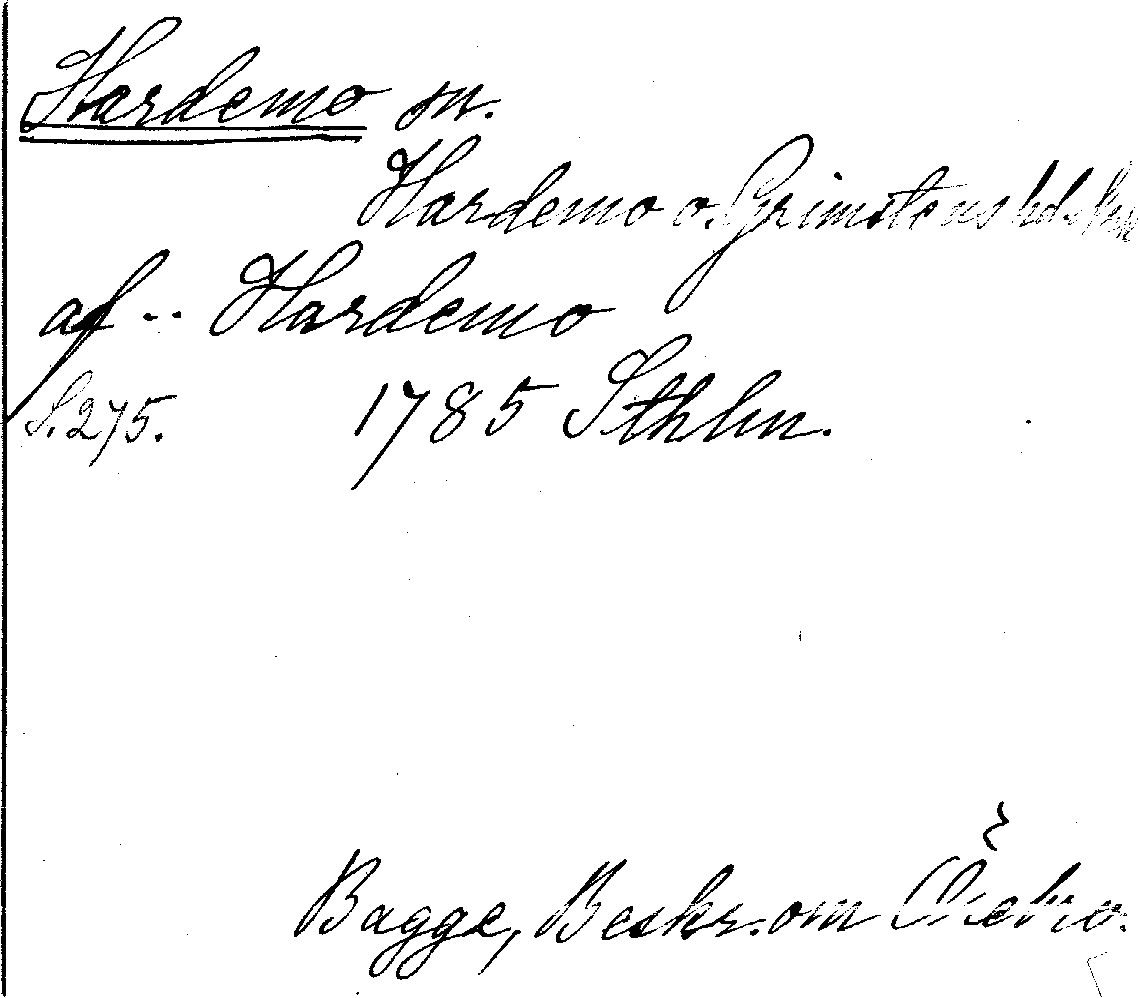 Hardemo sn.
Hardemo o. Grimstens hds
af -- Hardemo
S. 275. 1785 Sthlm.
Bagge, Beskr. om Örebro.